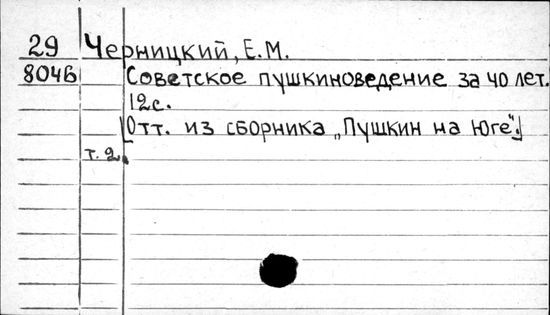 29 Черницкий, Е.М.
8046 Советское пушкиноведение за 40 лет.
12с.
[Отт. из сборника „Пушкин на Юге".]
т. 2.